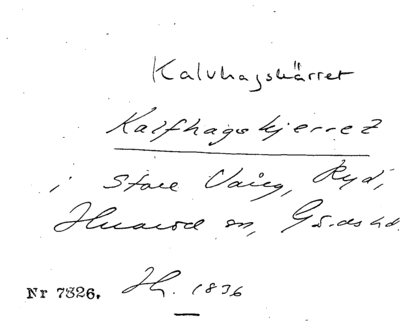 Kalvhagskärret
Kalfhagskjerret
i Store Vång, Ryd,
Huarod sn, Gärds hd.
Nr 7826. Hh. 1836